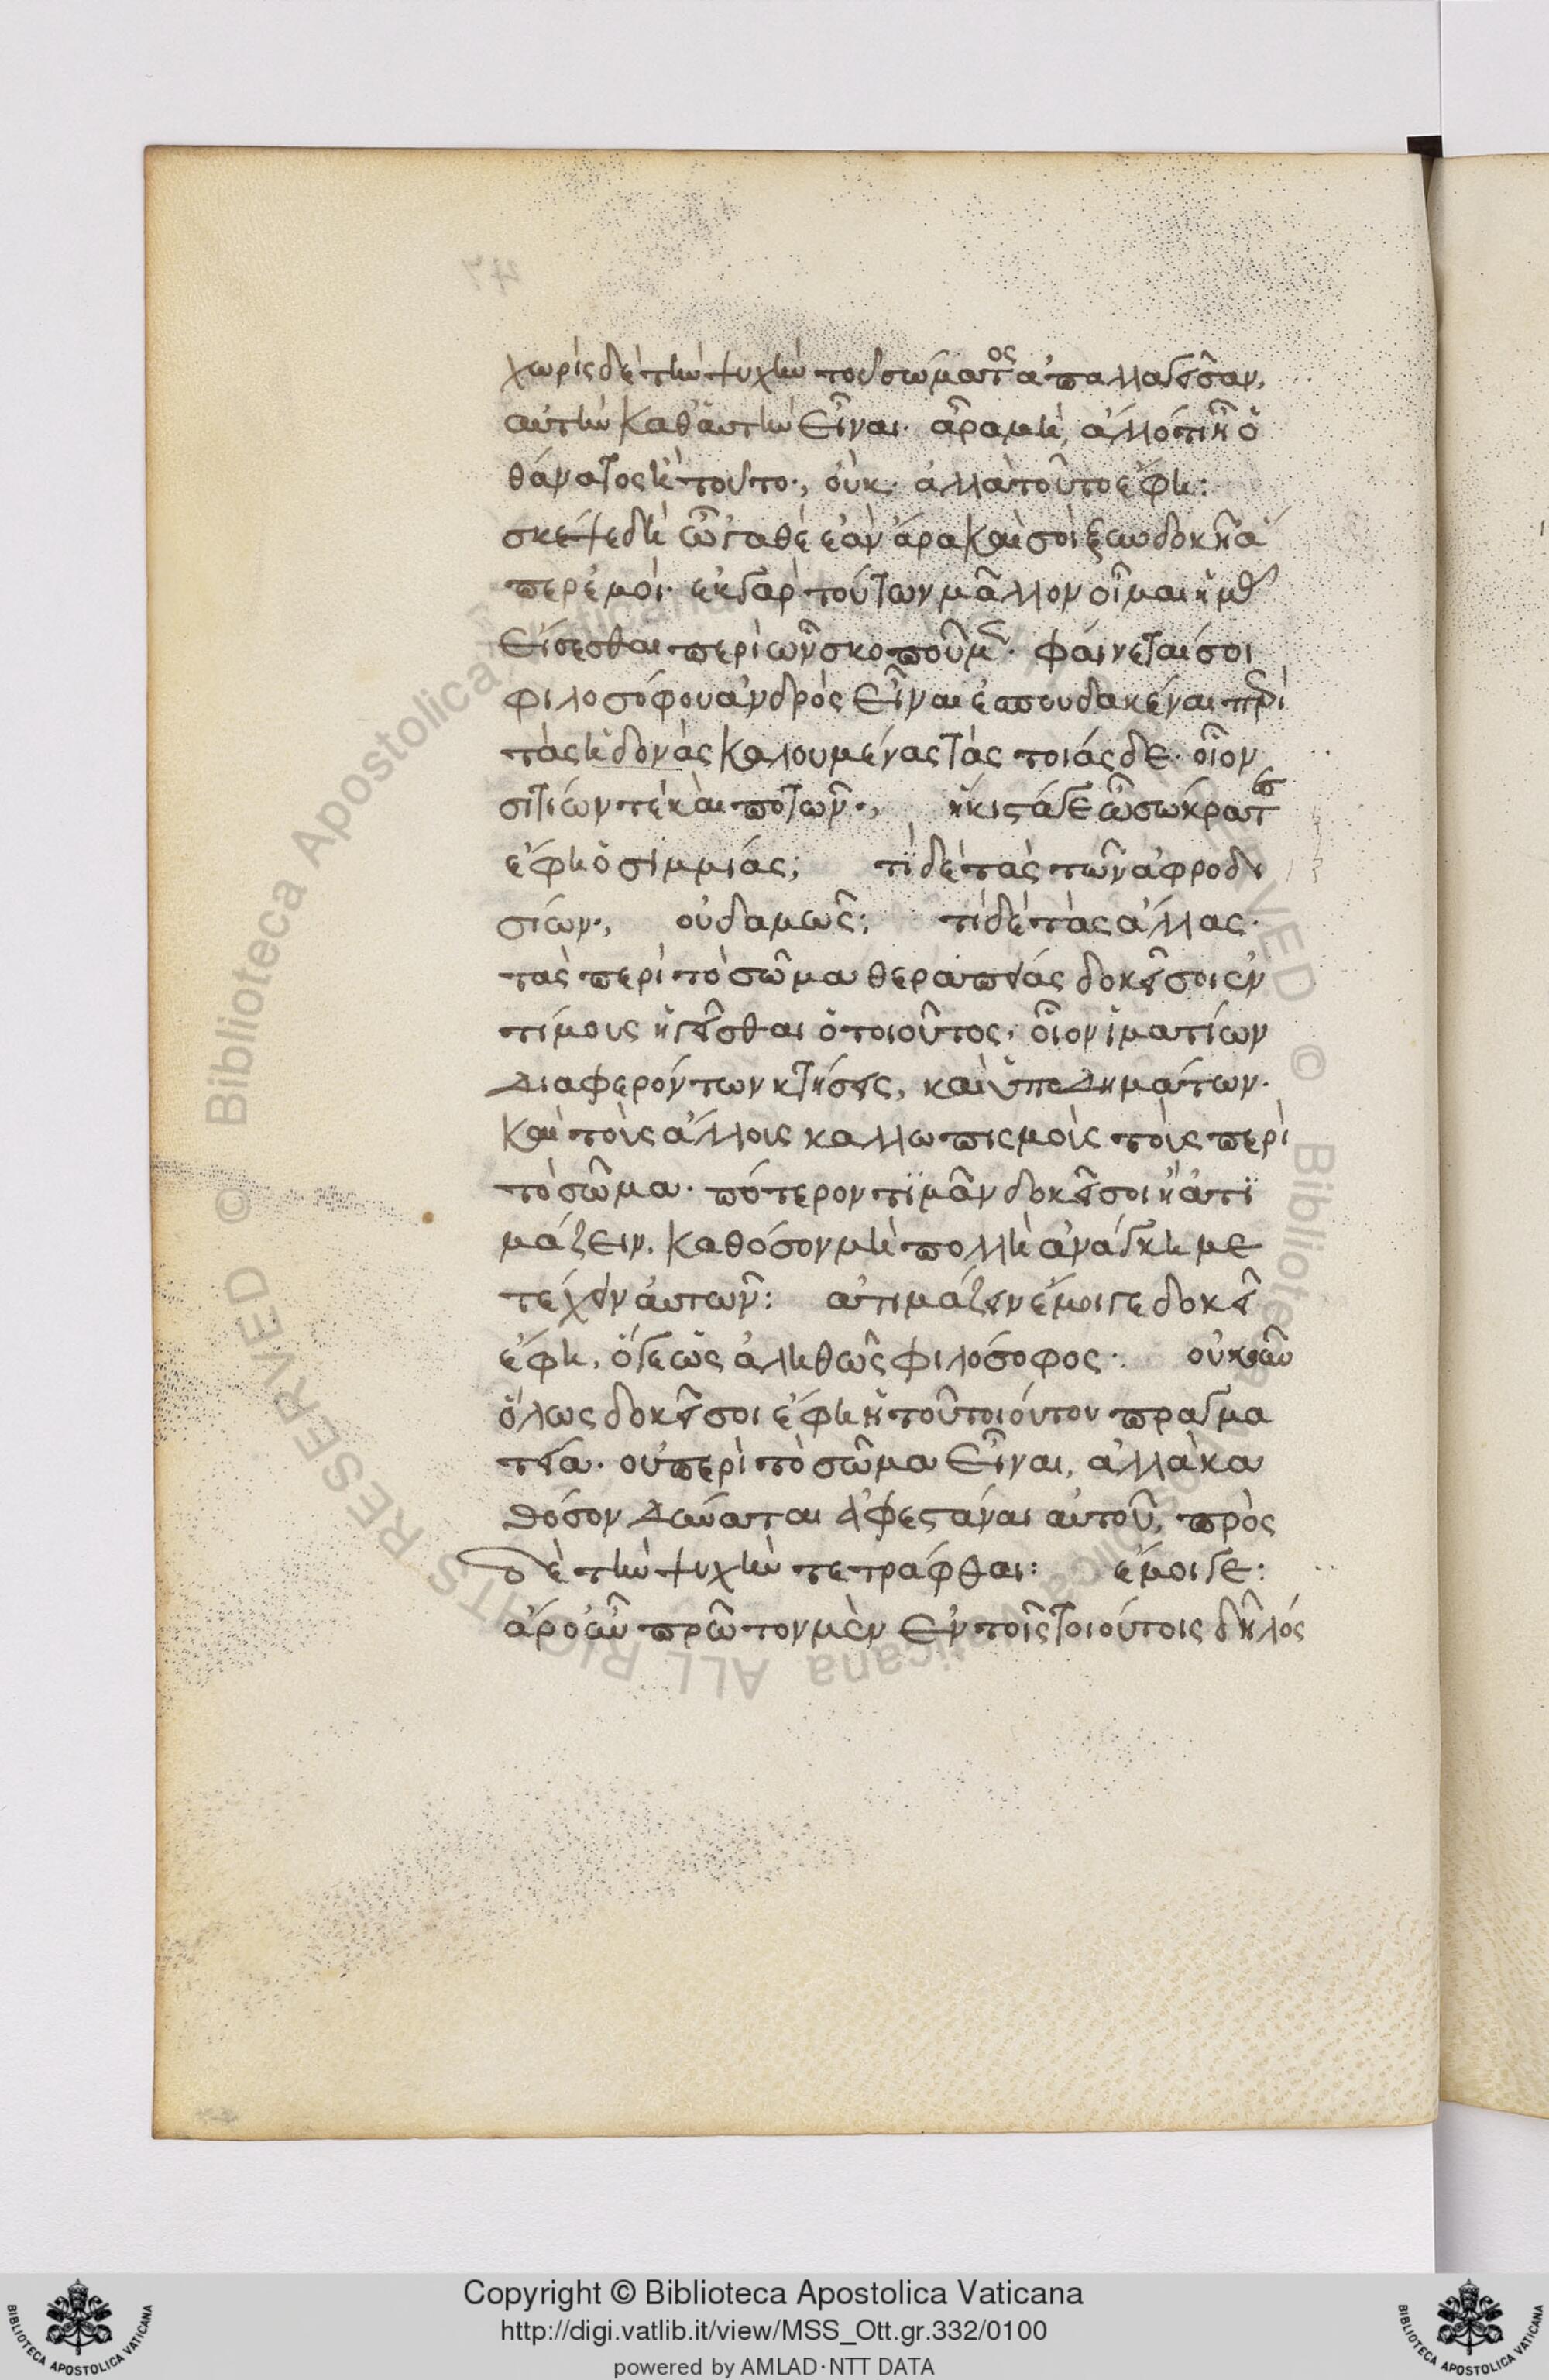 χωρὶς δὲ τὴν ψυχὴν τοῦ σώματος ἀπαλλαγεῖσαν,
αὐτὴν καθ' αὑτὴν εἶναι. ἆρα μὴ, ἄλλό τι ἦ ὁ
θάνατος ἢ τοῦτο·, οὐκ. ἀλλὰ τοῦτο ἔφη:
σκέψε δὴ ὦ 'γαθὲ ἐὰν ἄρα καὶ σοὶ ξυνδοκῆ ἅ
περ ἐμοί. ἐκ γὰρ τούτων μᾶλλον οἶμαι ἡμᾶς
εἴσεσθαι περὶ ὧν σκοποῦμεν. φαίνεταί σοι
φιλοσόφου ἀνδρὸς εἶναι ἐσπουδακέναι περὶ
τὰς ἡδονὰς καλουμένας τὰς τοιάσδε. οἷον
σιτίων τὲ καὶ ποτῶν·, ἥκιστά γε ὦ σώκρατες
ἔφη ὁ σιμμίας; τί δὲ τὰς τῶν ἀφροδι
σίων·, οὐδαμῶς; τί δὲ τὰς ἄλλας.
τὰς περὶ τὸ σῶμα θεραπείας δοκεῖ σοι ἐν
τίμους ἡγεῖσθαι ὁ τοιοῦτος, οἷον ἱματίων
διαφερόντων κτήσεις, καὶ ὑποδημάτων.
καὶ τοὺς ἄλλους καλλωπισμοὺς τοὺς περὶ
τὸ σῶμα. πότερον τιμᾶν δοκεῖ σοι ἢ ἀτι
μάζειν. καθόσον μὴ πολλὴ ἀνάγκη με
τέχειν αὐτῶν: ἀτιμάζειν ἔμοιγε δοκεῖ
ἔφη, ὅ γε ὡς ἀληθῶς φιλόσοφος·. οὐκοῦν
ὅλως δοκεῖ σοι ἔφη ἡ τοῦ τοιούτου πραγμα
τεία. οὐ περὶ τὸ σῶμα εἶναι, ἀλλὰ κα
θόσον δύναται ἀφεστάναι αὐτοῦ, πρὸς
δὲ τὴν ψυχὴν τετράφθαι: ἔμοιγε:
ἆρ' οὖν πρῶτον μὲν ἐν τοῖς τοιούτοις δῆλός
Copyright © Biblioteca Apostolica Vaticana
http://digi.vatlib.it/view/MSS_Ott.gr.332/0100
powered by AMLAD·NTT DATA